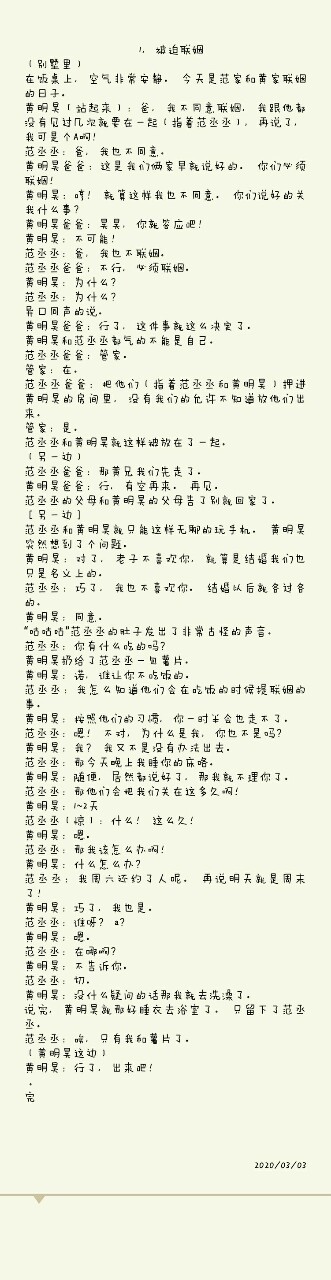 1. 被迫联姻
（别墅里）
在饭桌上，空气非常安静。今天是范家和黄家联姻
的日子。
黄明昊（站起来）：爸，我不同意联姻，我跟他都
没有见过几次就要在一起（指着范丞丞），再说了，
我可是个A啊！
范丞丞：爸，我也不同意。
黄明昊爸爸：这是我们俩家早就说好的。你们必须
联姻！
黄明昊：哼！就算这样我也不同意。你们说好的关
我什么事？
黄明昊爸爸：昊昊，你就答应吧！
黄明昊：不可能！
范丞丞：爸，我也不联姻。
范丞丞爸爸：不行，必须联姻。
黄明昊：为什么？
范丞丞：为什么？
异口同声的说。
黄明昊爸爸：行了，这件事就这么决定了。
黄明昊和范丞丞都气的不能是自己。
范丞丞爸爸：管家。
管家：在。
范丞丞爸爸：把他们（指着范丞丞和黄明昊）押进
黄明昊的房间里，没有我们的允许不知道放他们出
来。
管家：是。
范丞丞和黄明昊就这样被放在了一起。
（另一边）
范丞丞爸爸：那黄兄我们先走了。
黄明昊爸爸：行，有空再来。再见。
范丞丞的父母和黄明昊的父母告了别就回家了。
［另一边］
范丞丞和黄明昊就只能这样无聊的玩手机。黄明昊
突然想到了个问题。
黄明昊：对了，老子不喜欢你，就算是结婚我们也
只是名义上的。
范丞丞：巧了，我也不喜欢你。结婚以后就各过各
的。
黄明昊：同意。
“咕咕咕”范丞丞的肚子发出了非常古怪的声音。
范丞丞：你有什么吃的吗？
黄明昊扔给了范丞丞一包薯片。
黄明昊：诺，谁让你不吃饭的。
范丞丞：我怎么知道他们会在吃饭的时候提联姻的
事。
黄明昊：按照他们的习惯，你一时半会也走不了。
范丞丞：嗯！不对，为什么是我，你也不是吗？
黄明昊：我？我又不是没有办法出去。
范丞丞：那今天晚上我睡你的床咯。
黄明昊：随便，居然都说好了，那我就不理你了。
范丞丞：那他们会把我们关在这多久啊！
黄明昊：1~2天
范丞丞（惊）：什么！这么久！
黄明昊：嗯。
范丞丞：那我该怎么办啊！
黄明昊：什么怎么办？
范丞丞：我周六还约了人呢，再说明天就是周末
了！
黄明昊：巧了，我也是。
范丞丞：谁呀？a？
黄明昊：嗯。
范丞丞：在哪啊？
黄明昊：不告诉你。
范丞丞：切。
黄明昊：没什么疑问的话那我就去洗澡了。
说完，黄明昊就那好睡衣去浴室了。只留下了范丞
丞。
范丞丞：唉，只有我和薯片了。
（黄明昊这边）
黄明昊：行了，出来吧！
.
完
2020/03/03